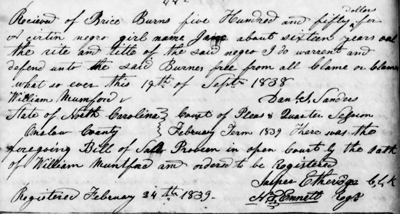 dollars
Recieved of Brice Burns five Hundred and fifty for
a certin negro girl name Jane about sixteen years old
the rite and title of the said negro I do warrent and
defend unto the said Burnes free from all Clame or Clames
what so ever this 19th of Sept 1838
William Mumford Daniel Sanders
State of North Carolina } Court of Pleas & Quarter Session
Onslow County } February Term 1839 There was the
foregoing Bill of Sale Proven in open Court by the oath
of William Mumford and ordered to be Registered
Jasper Etheridge Clk
Registered February 24th 1839. Emmett Regr